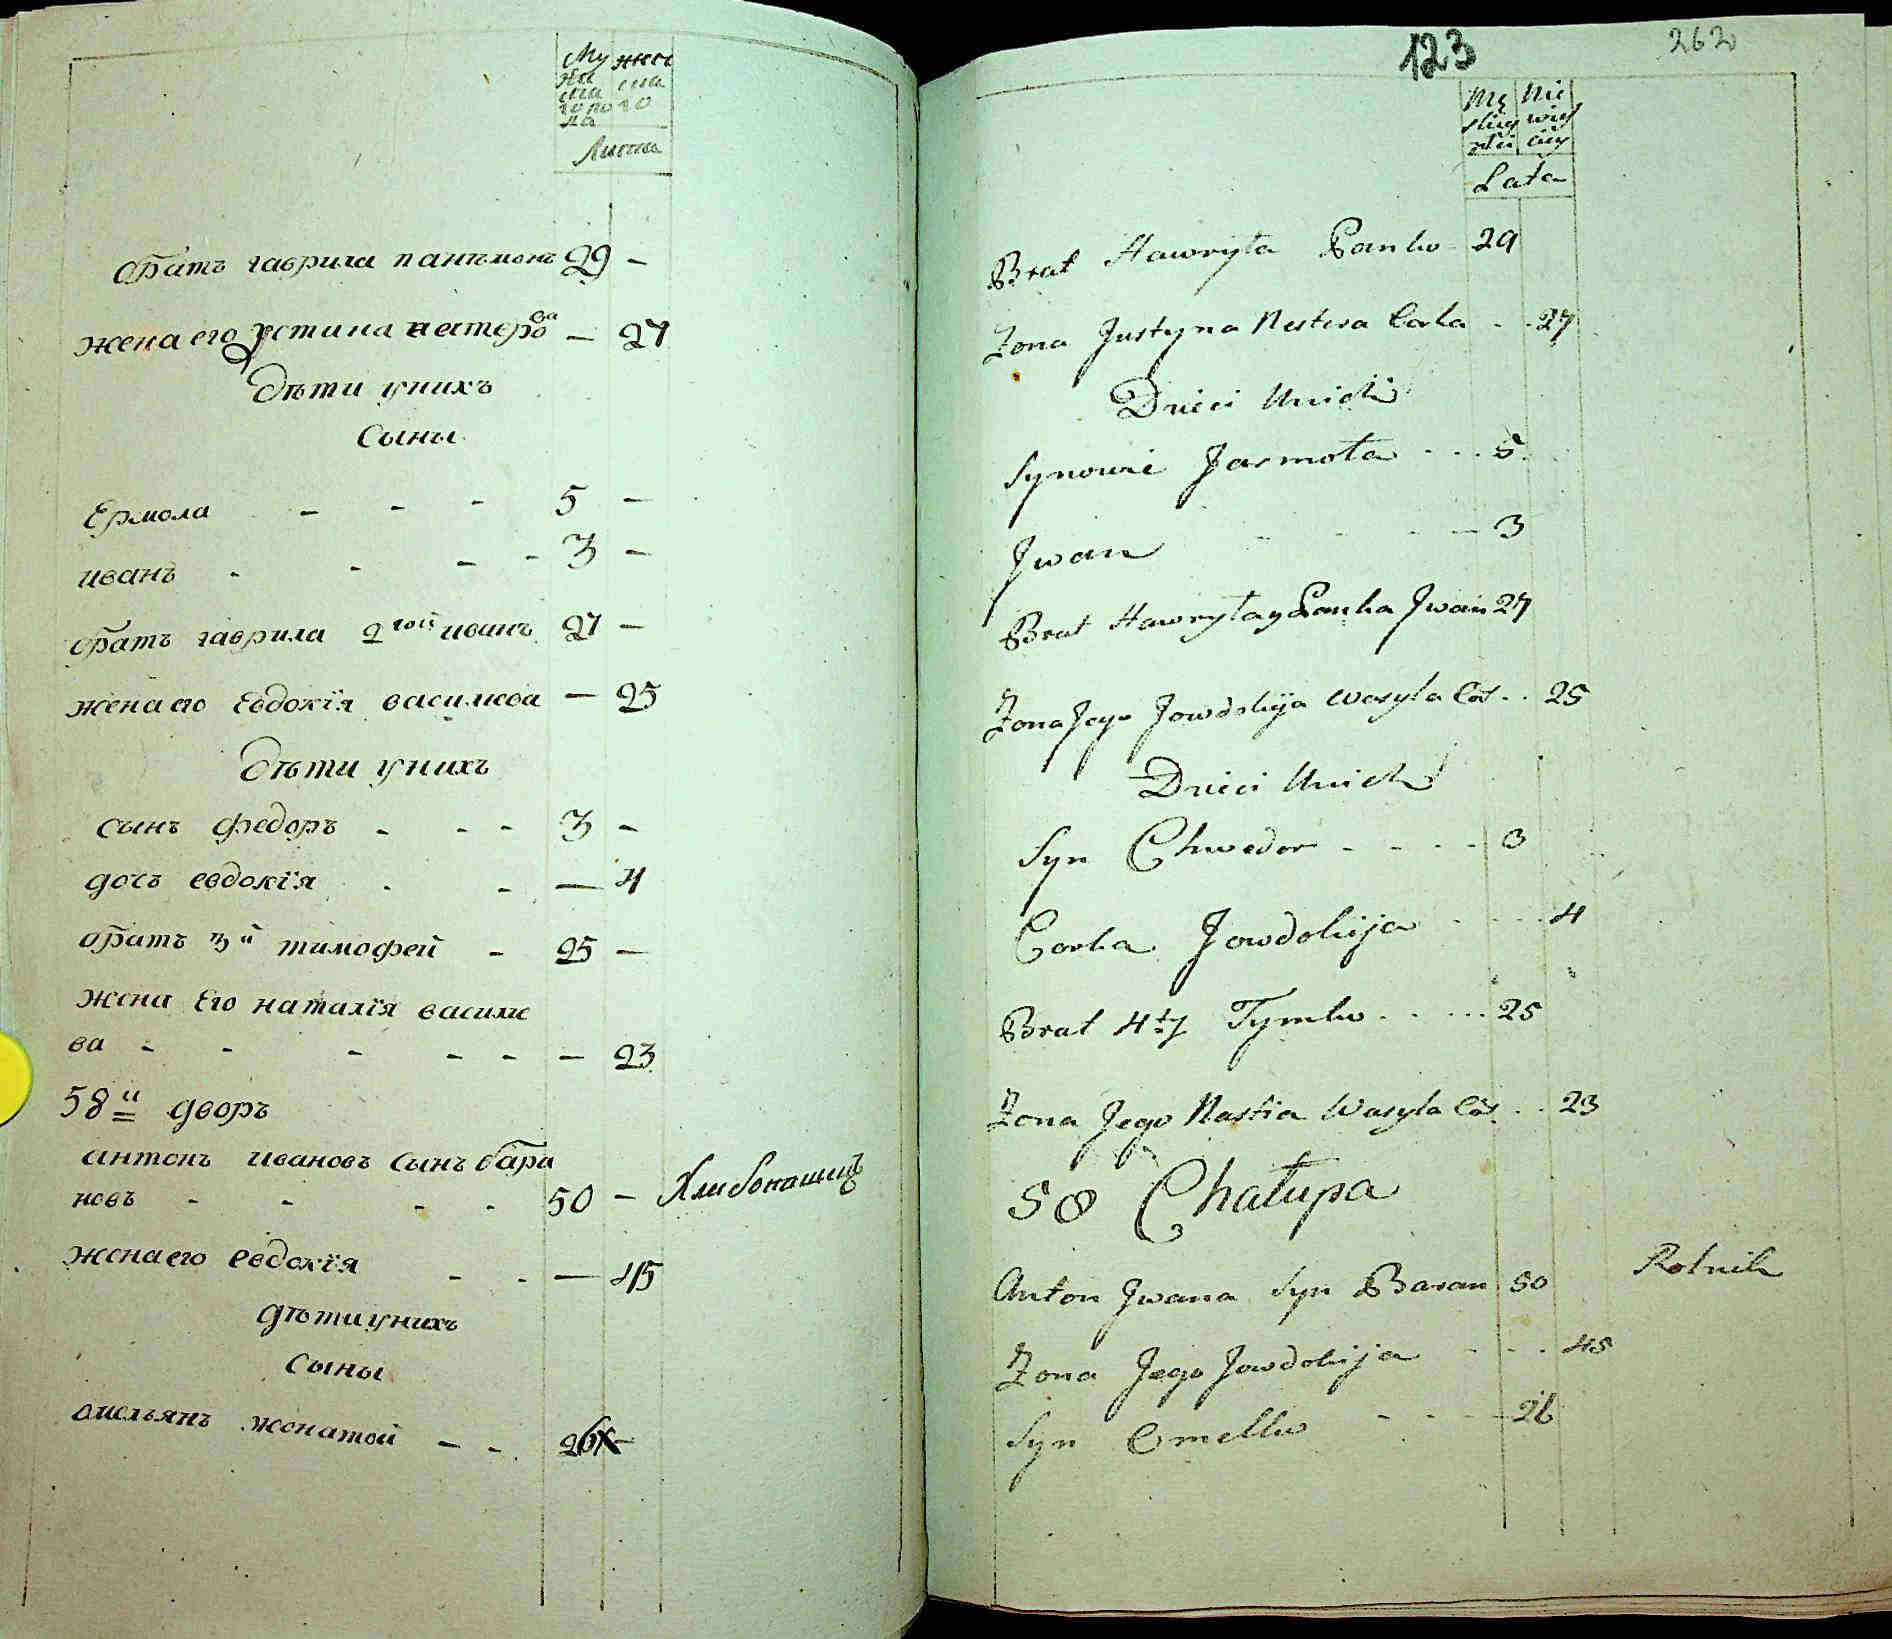 Му жес
жи
ска ска
го по го
ла
Лита
братъ гаврила пантъмонъ 29 -
жена его устина нестерова - 27
дѣти унихъ
сыны
Ермола - - - 5 -
иванъ - - - - 3 -
братъ гаврила 2гой иванъ 27 -
жена его Евдокїя василева - 25
дѣти унихъ
сынъ федоръ - - - 3 -
дочь евдокїя - - - 4
братъ 3й тимофей - 25 -
жена Его наталїя василе
ва - - - - - - 23
58й дворъ
антонъ ивановъ сынъ бара
новъ - - - - 50 - Хлибопашицъ
жена его евдокїя - - - 45
дѣти унихъ
сыны
омельянъ женатой - - 26 -
123 262
Mę Nie
skiey wieś
płci ciey
Lata
Brat Hawryła Panko - 29
Zona Justyna Nestera Corka - - 27
Dzieci Unich
Synowie Jarmoła - - - 5
Jwan - - - - 3
Brat Hawryłay Panka Jwan 27
Zona Jego Jowdokija Wasyla Cor. - 25
Dzieci Unich
Syn Chwedor - - - - 3
Corka Jowdokija - - - - 4
Brat 4ty Tymko - - - - 25
Zona Jego Nastia Wasyla Cor. - - 23
58 Chałupa
Anton Jwana Syn Baran 50 Rolnik
Zona Jego Jowdokija - - - 45
Syn Omelko - - - - 26